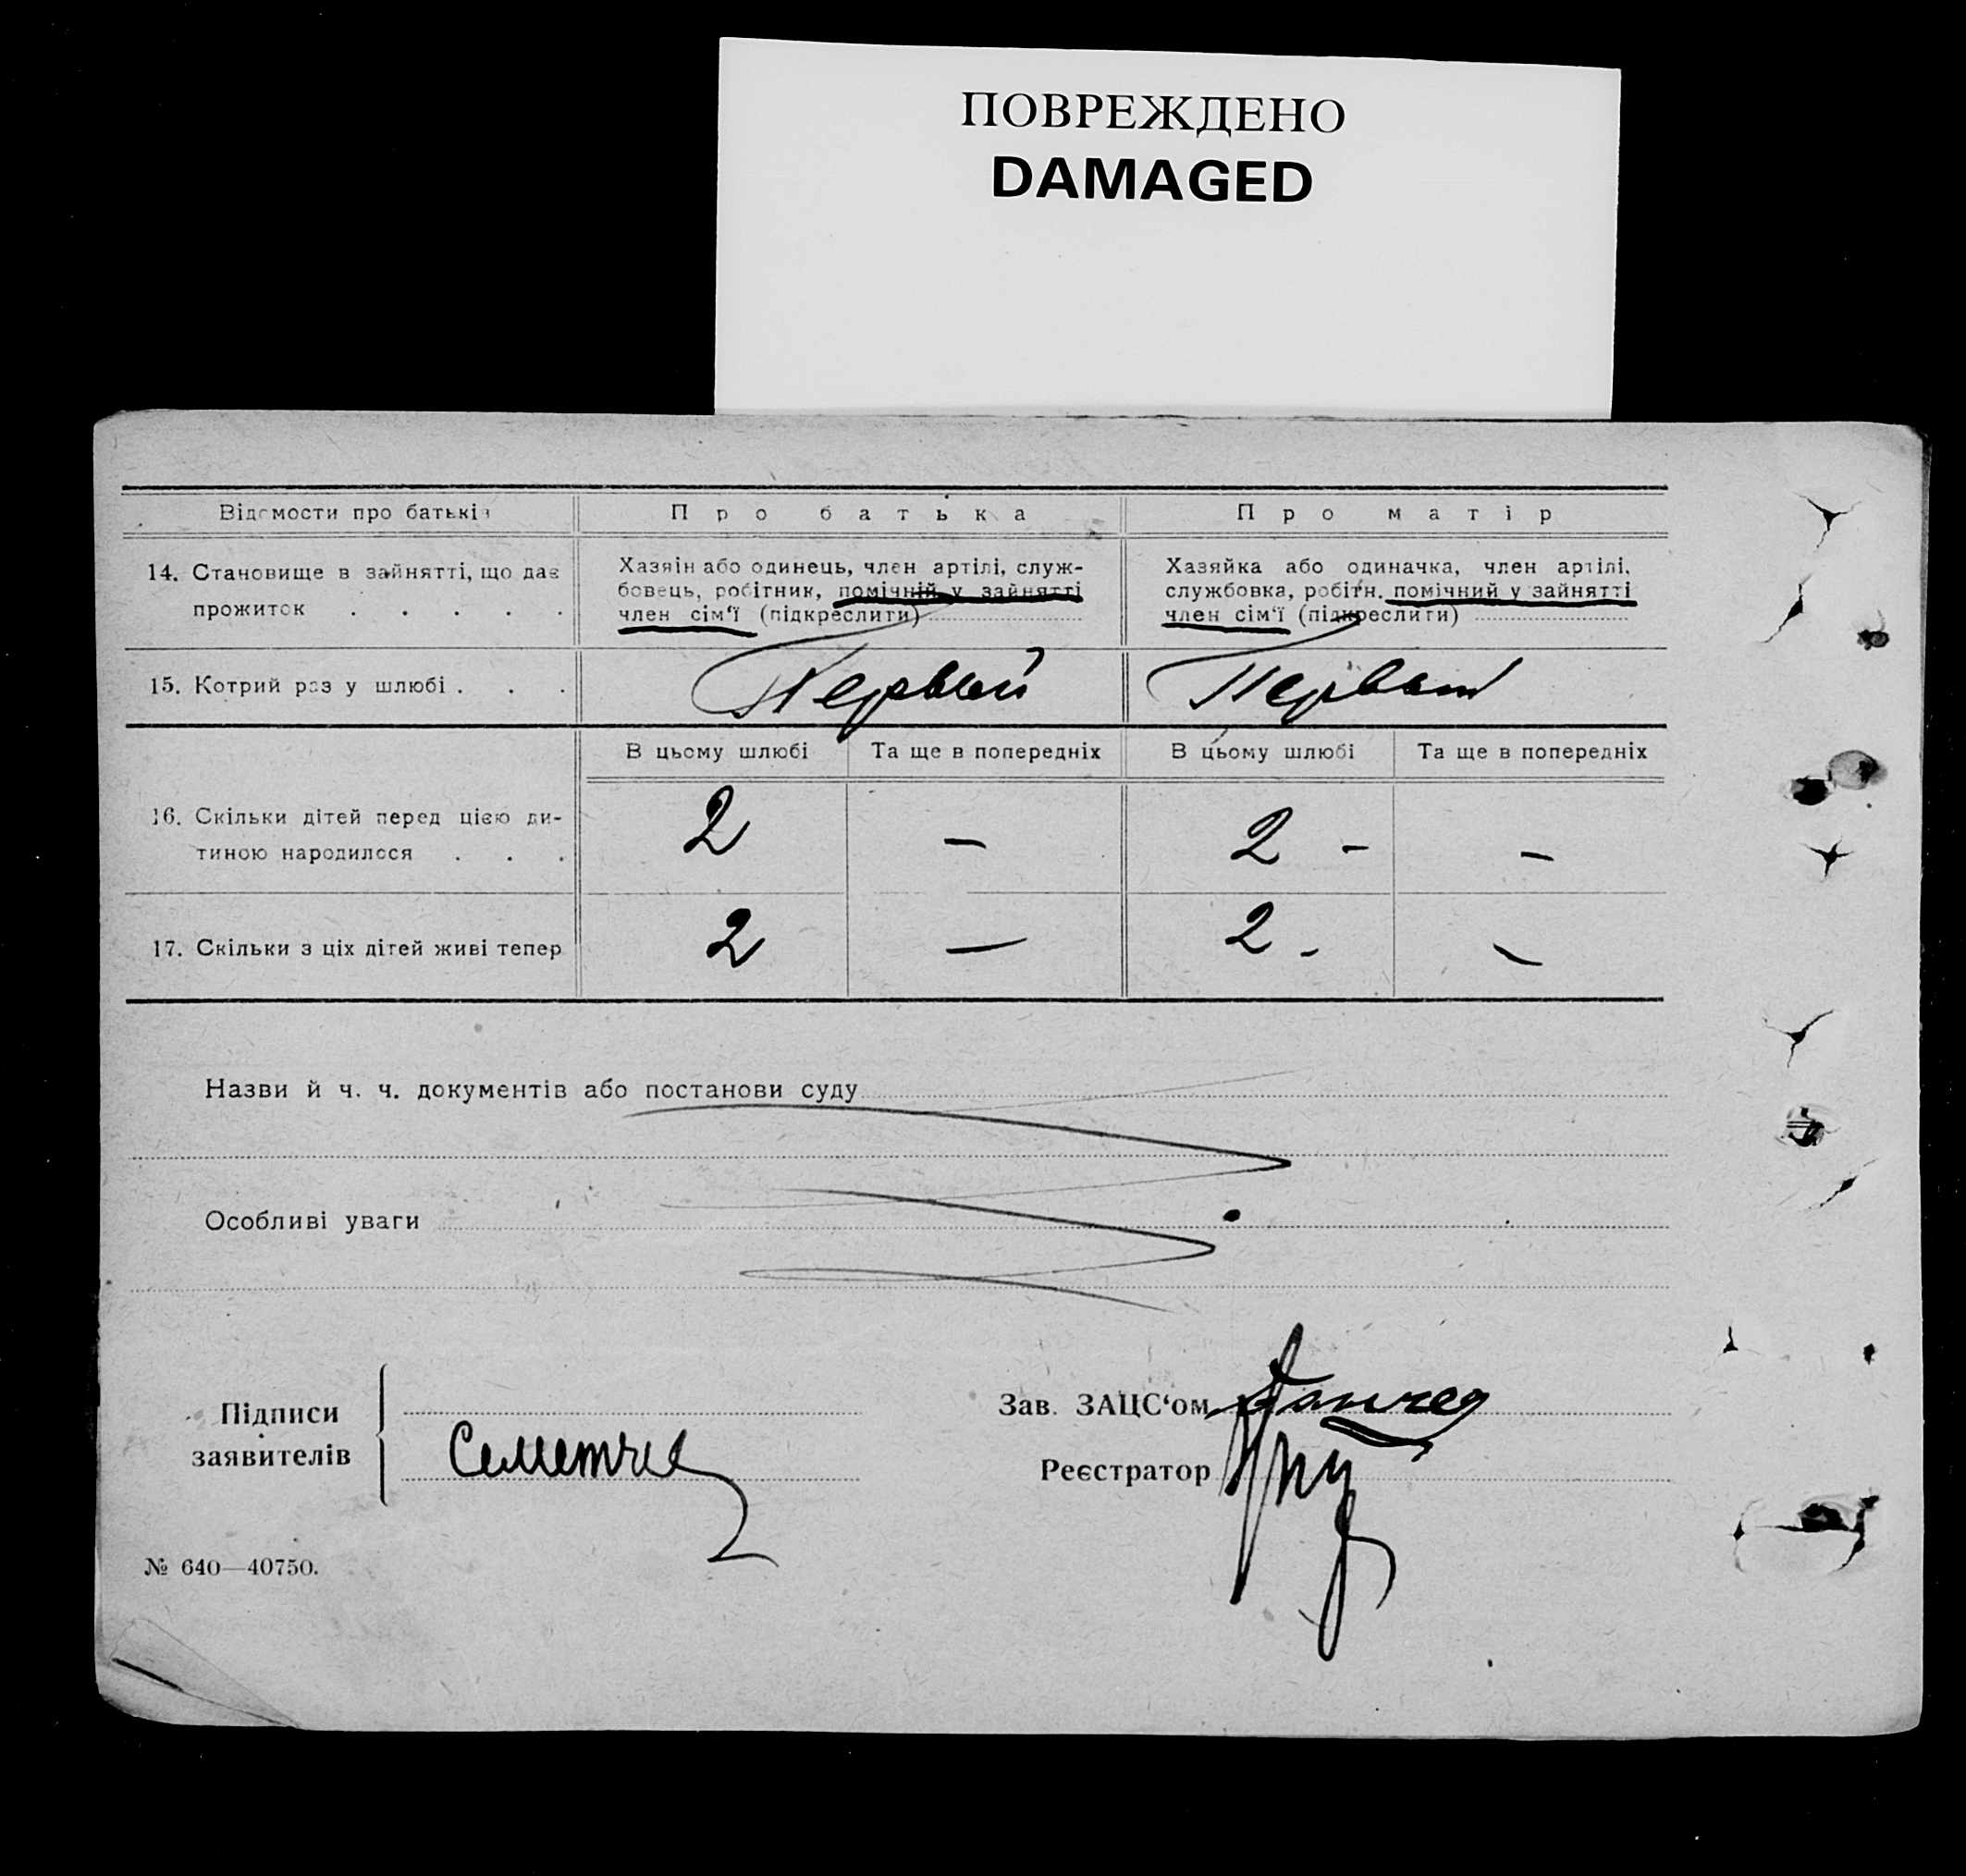 ПОВРЕЖДЕНО
DAMAGED
Відомости про батьків
Про батька
Про матір
14. Становище в зайнятті, що дає
прожиток . . . . .
Хазяін або одинець, член артілі, служ-
бовець, робітник, помічній у зайнятті
член сім'ї (підкреслити)
Хазяйка або одиначка, член артілі,
службовка, робітн. помічний у зайнятті
член сім'ї (підкреслити)
15. Котрий раз у шлюбі . . .
Первый
Первый
В цьому шлюбі
Та ще в попередніх
В цьому шлюбі
Та ще в попередніх
16. Скільки дітей перед цією ди-
тиною народилося . . .
2
—
2 -
-
17. Скільки з ціх дітей живі тепер
2
—
2 -
-
Назви й ч. ч. документів або постанови суду
Особливі уваги
Підписи
заявителів
Зав. ЗАЦС'ом
Реєстратор
№ 640—40750.